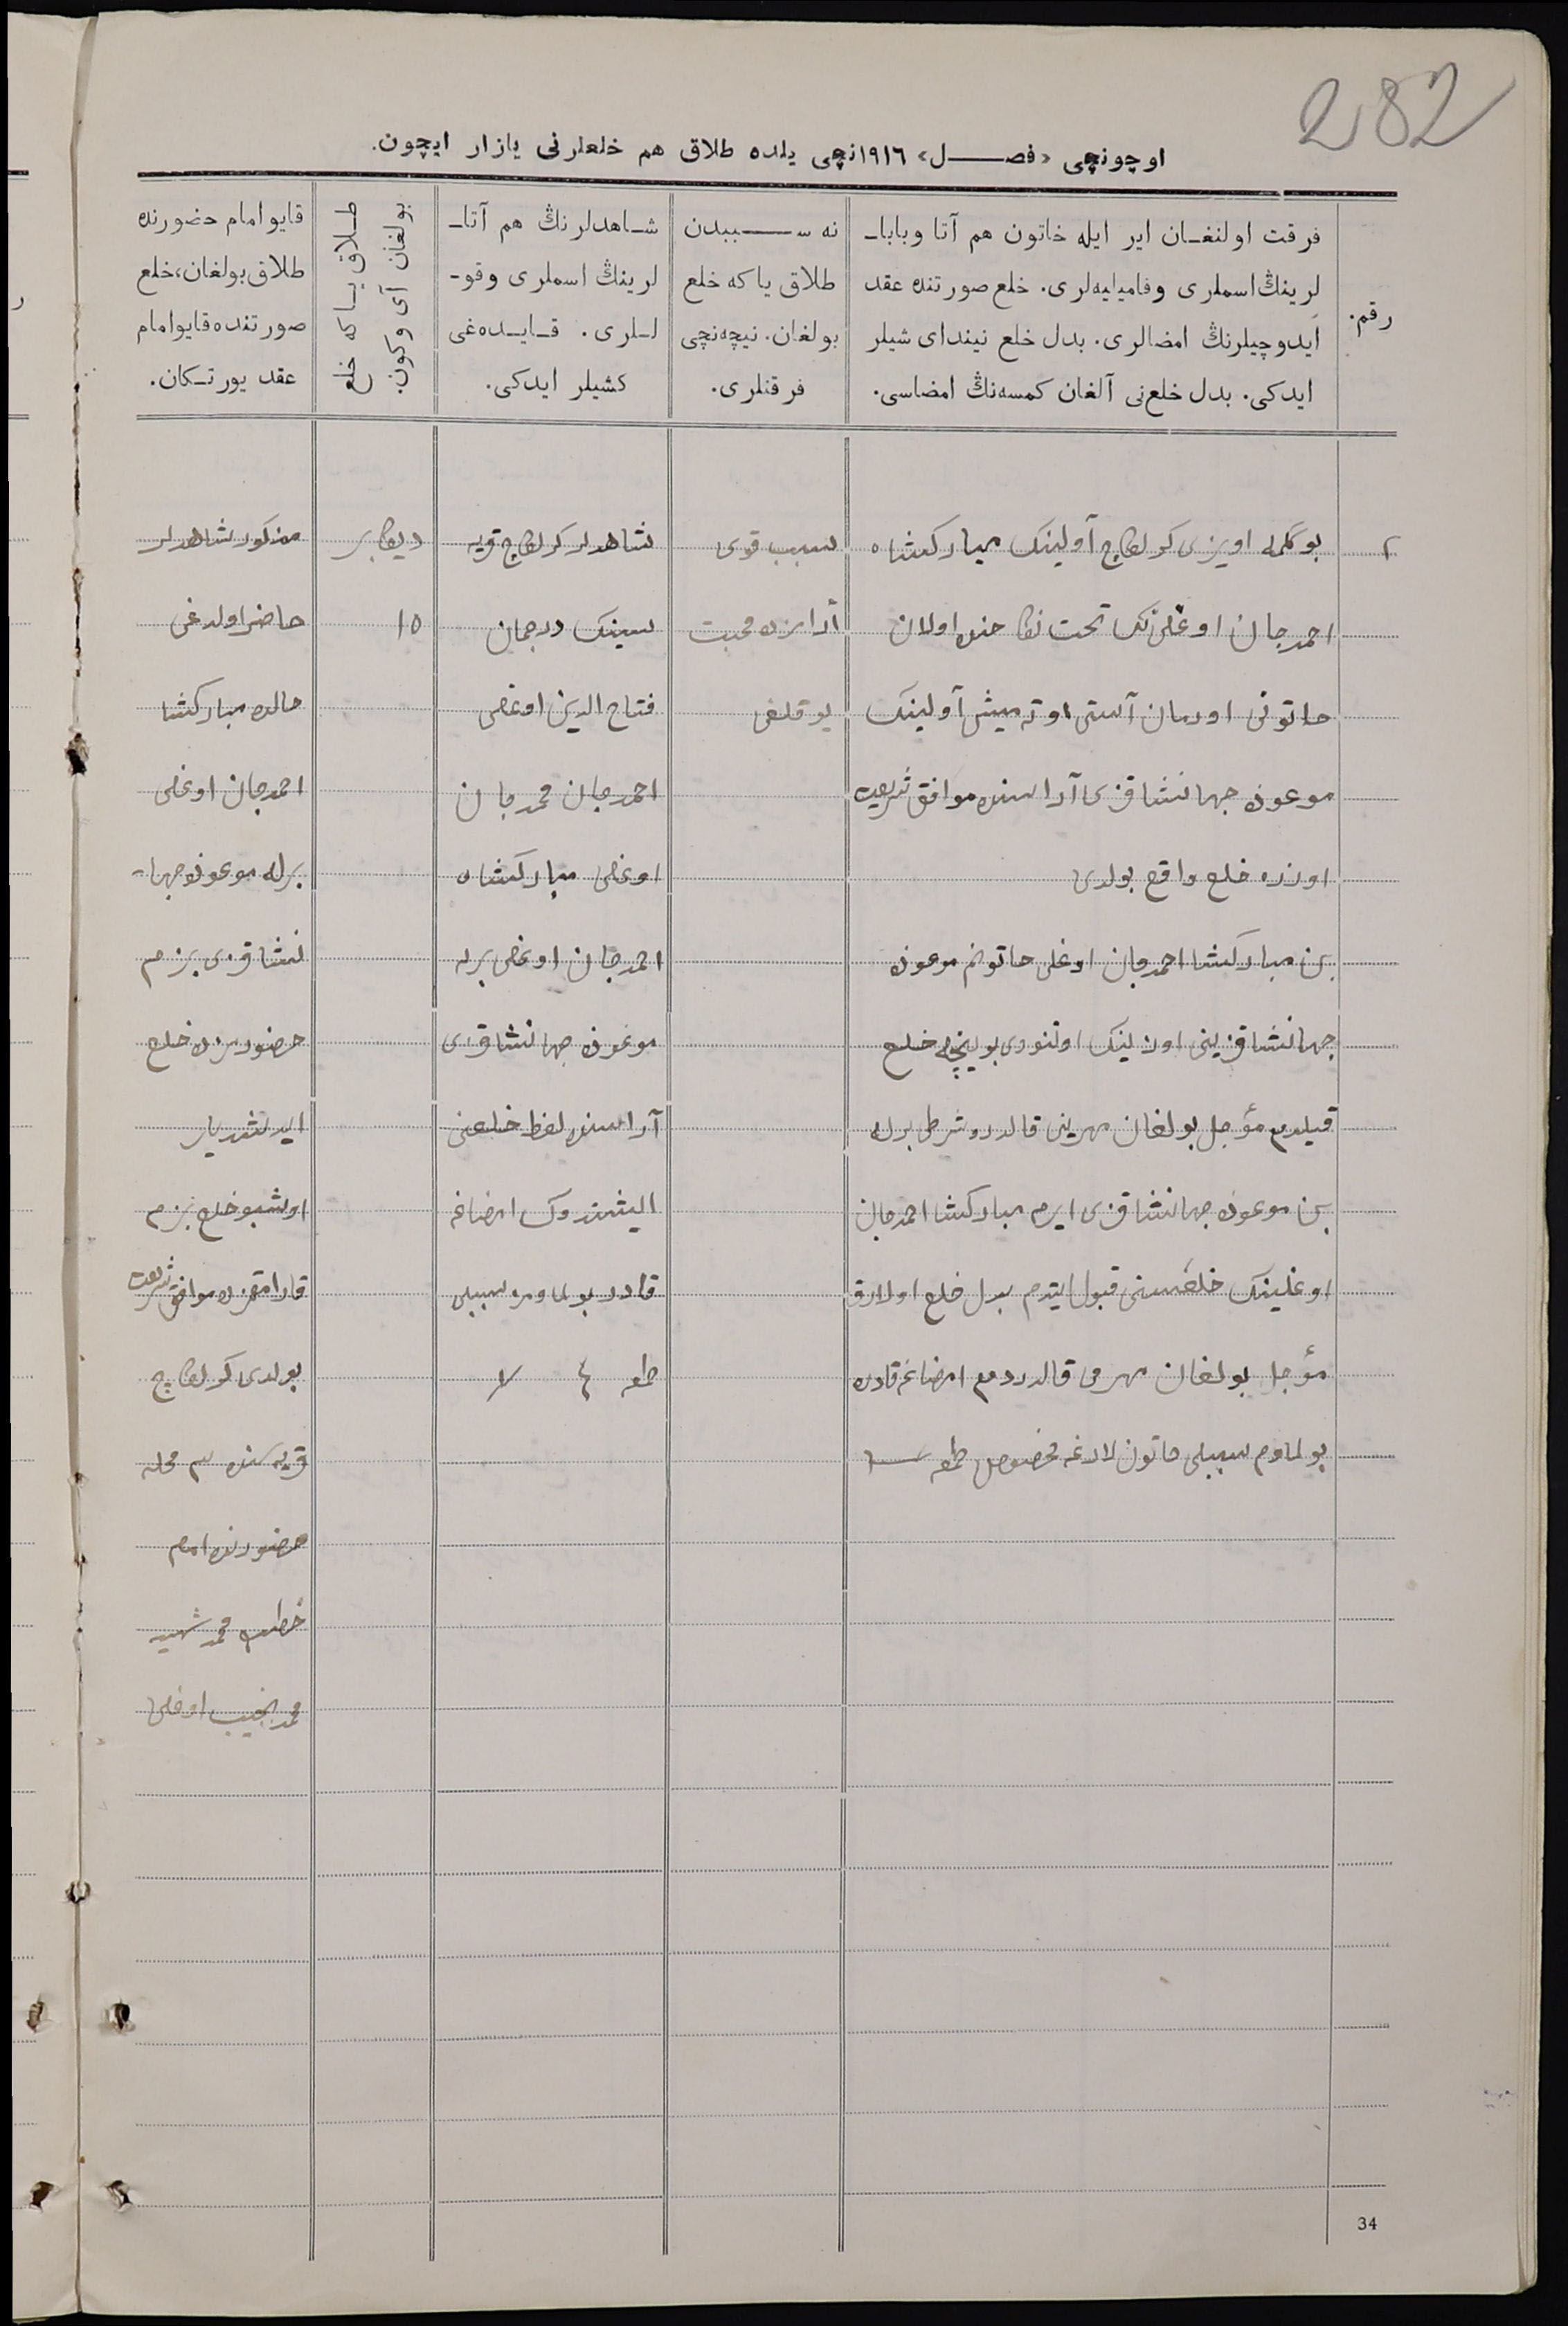 282
اوچونچی «فصل» ۱۹۱٦نچی یلده طلاق هم خلعلرنی یازار ایچون.
رقم.
فرقت اولنغان ایر ایله خاتون هم آتا وبابا-
لرینڭ اسملری وفامیلیه‌لری. خلع صورتنده عقد
ایدوچیلرنڭ امضالری. بدل خلع نیندای شیلر
ایدکی. بدل خلع‌نی آلغان کمسه‌نڭ امضاسی.
نه سببدن
طلاق یا که خلع
بولغان. نیچه‌نچی
فرقتلری.
شاهدلرنڭ هم آتا-
لرینڭ اسملری وقو-
للری. قایده‌غی
کشیلر ایدکی.
طلاق یا که خلع
بولغان آی وکون.
قایو امام حضورنده
طلاق بولغان، خلع
صورتنده قایو امام
عقد یورتکان.
٢
بو اویزی آولینک مبارکشاه
احمدجان اوغلی‌نک تحت نکاحنده اولان
خاتونی اورمان آستی اوته‌میش آولینک
جهانشا قزی آراسنده موافق شریعت
اوزره خلع واقع بولدی
بن مبارکشا احمدجان اوغلی خاتونم
جهانشا قزینی اوزینک اوتنووی بوینچه خلع
قیلدم مؤجل بولغان مهرینی قالدرو شرطی برله
بن جهانشا قزی ایرم مبارکشا احمدجان
اوغلینک خلعسنی قبول ایتدم بدل خلع اولارق
مؤجل بولغان مهرمی قالدردم امضاغه قادره
بولماوم سببلی خاتونلارغه مخصوص طمغه
سبب قوی
آرابزده محبت
یوقلغی
شاهدلر قریه
سینک
فتاح الدین اوغلی
احمدجان محمدجان
اوغلی مبارکشاه
احمدجان اوغلی برله
جهانشا قزی
آراسنده لفظ خلعنی
ایشتدوک امضاغه
قادر سببلی
طمغه
دیکابر
١٥
مذکور شاهدلر
حاضر اولدغی
حالده مبارکشا
احمدجان اوغلی
برله جها-
نشا قزی بزم
حضورمزده خلع
ایدشدیلر
اوشبو خلع بزم
قارامقمزده موافق شریعت
بولدی
قریه‌سنده ٣ محله
حضورنده امام
خطیب محمد
محمدنجیب اوغلی
34